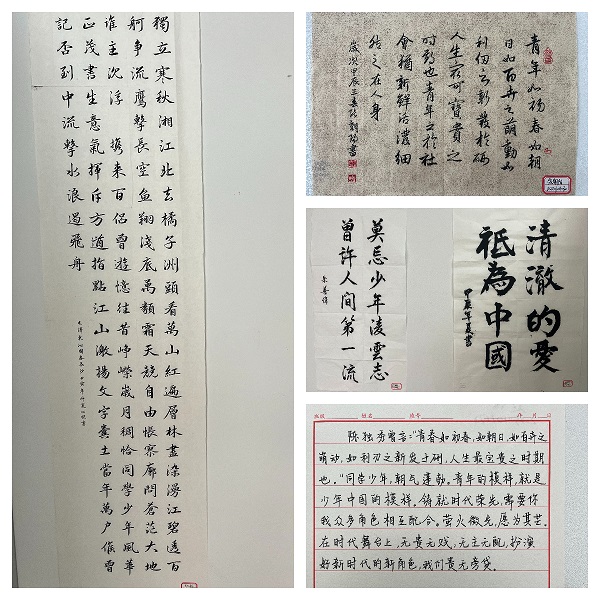 獨立寒秋湘江北去橘子洲頭看萬山紅遍層林盡染漫江碧透百
舸爭流鷹擊長空魚翔淺底萬類霜天競自由悵寥廓問蒼茫大地
誰主沉浮 攜來百侶曾遊憶往昔崢嶸歲月稠恰同學少年風華
正茂書生意氣揮斥方遒指點江山激揚文字糞土當年萬戶侯曾
記否到中流擊水浪遏飛舟
青年如初春如朝
日如百卉之萌動如
利刃之新發於硎
人生最可寶貴之
時期也青年之於社
會猶新鮮活潑細
胞之在人身
歲次甲辰
莫忘少年凌雲志
曾許人间第一流
清澈的愛
祗為中國
甲辰年夏書
年 月 日
陈独秀曾言:"青春如初春,如朝日,如百卉之
萌动,如利刃之新发于硎,人生最宝贵之时期
也。"同学少年,朝气蓬勃,青年的模样,就是
少年中国的模样。铸就时代荣光,需要你
我众多角色相互配合。萤火微光,愿为其芒。
在时代舞台上,无贵无贱,无主无配,扮演
好新时代的新角色,我们责无旁贷。